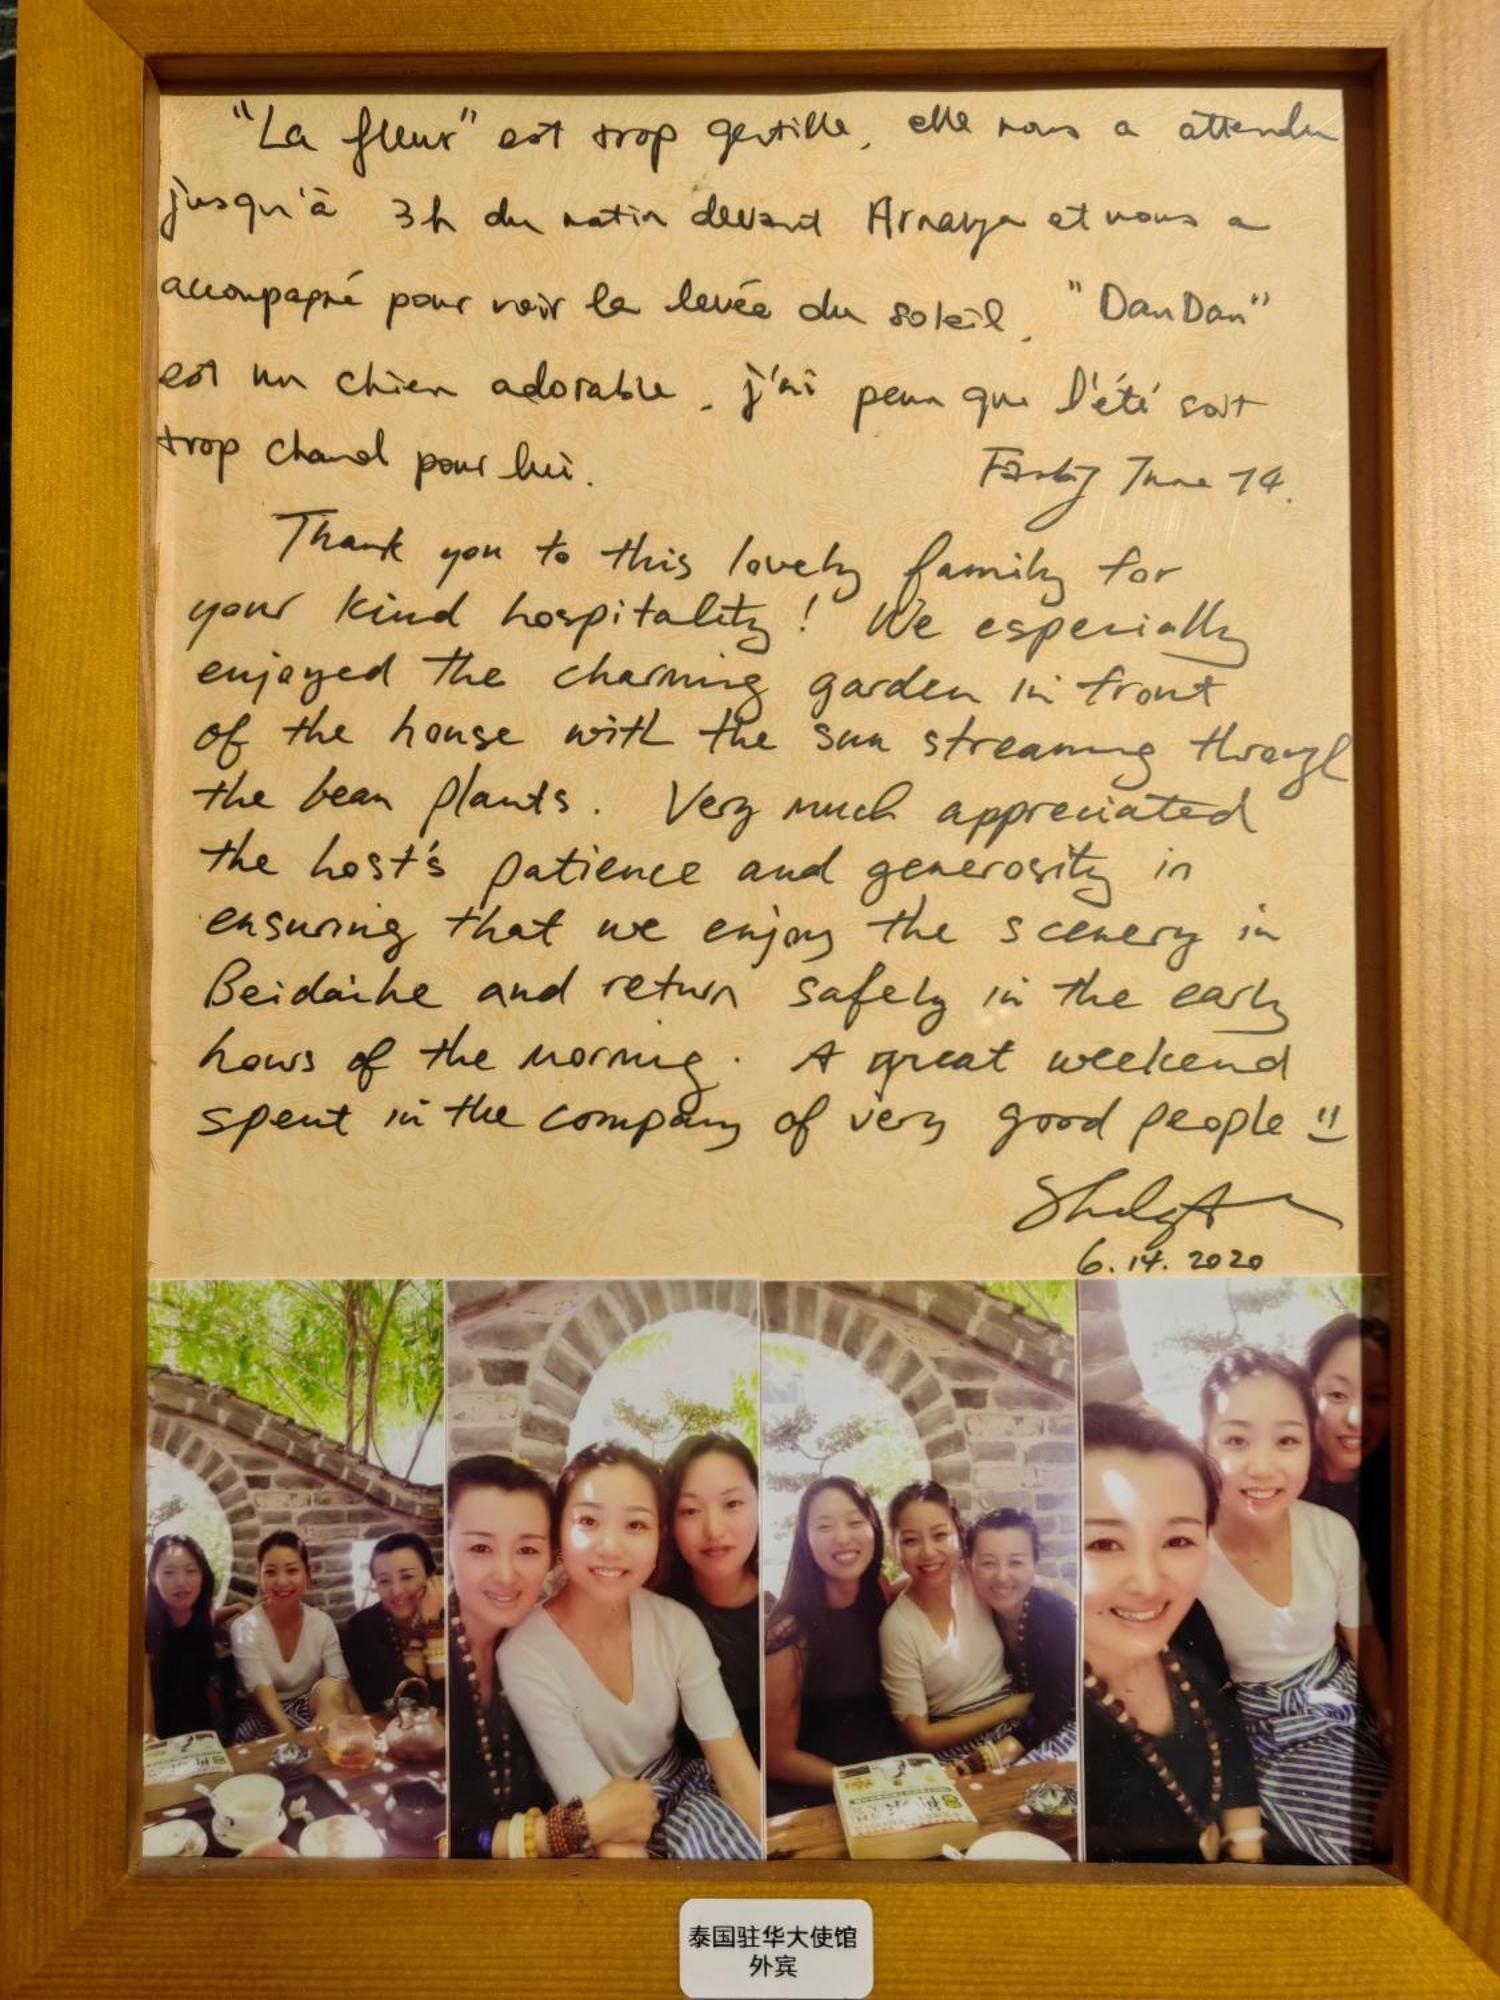 "La fleur" est trop gentille, elle nous a attendu
jusqu'à 3h du matin devant Aranya et nous a
accompagné pour voir la levée du soleil. "DanDan"
est un chien adorable. j'ai peur que l'été soit
trop chaud pour lui.
June 14.
Thank you to this lovely family for
your kind hospitality! We especially
enjoyed the charming garden in front
of the house with the sun streaming through
the bean plants. Very much appreciated
the host's patience and generosity in
ensuring that we enjoy the scenery in
Beidaihe and return safely in the early
hours of the morning. A great weekend
spent in the company of very good people
6.14.2020
泰国驻华大使馆
外宾